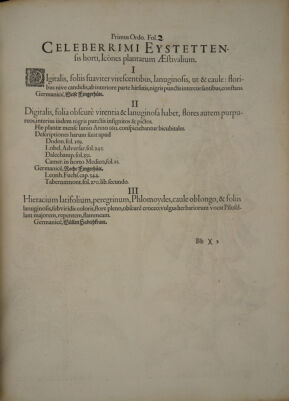 Primus Ordo. Fol. 2
CELEBERRIMI EYSTETTEN-
sis horti, Icònes plantarum Æstivalium.
I
Digitalis, foliis suaviter virescentibus, lanuginosis, ut & caule: flori-
bus nive candidis, ab interiore parte hirsutis, nigris punctis intercursantibus, constans
Germanicè,
II
Digitalis, folia obscurè virentia & lanuginosa habet, flores autem purpu-
reos, interius itidem nigris punctis insignitos & pictos.
Hæ plantæ mense Iunio Anno conspiciebantur bicubitales.
Descriptiones harum sunt apud
Dodon. fol. 169.
Lobel. Adversar. fol. 245.
Dalechamp. fol.
Camer. in horto Medico, fol.
Germanicè,
Leonh. Fuchs. cap. 344.
Tabernmont. fol. lib. secundo.
III
Hieracium latifolium, peregrinum, Phlomoydes, caule oblongo, & foliis
lanuginosis, subviridis coloris, flore pleno, obscurè croceo: vulgus herbariorum vocat Pilosel-
lam majorem, repentem, flammeam.
Germanicè,